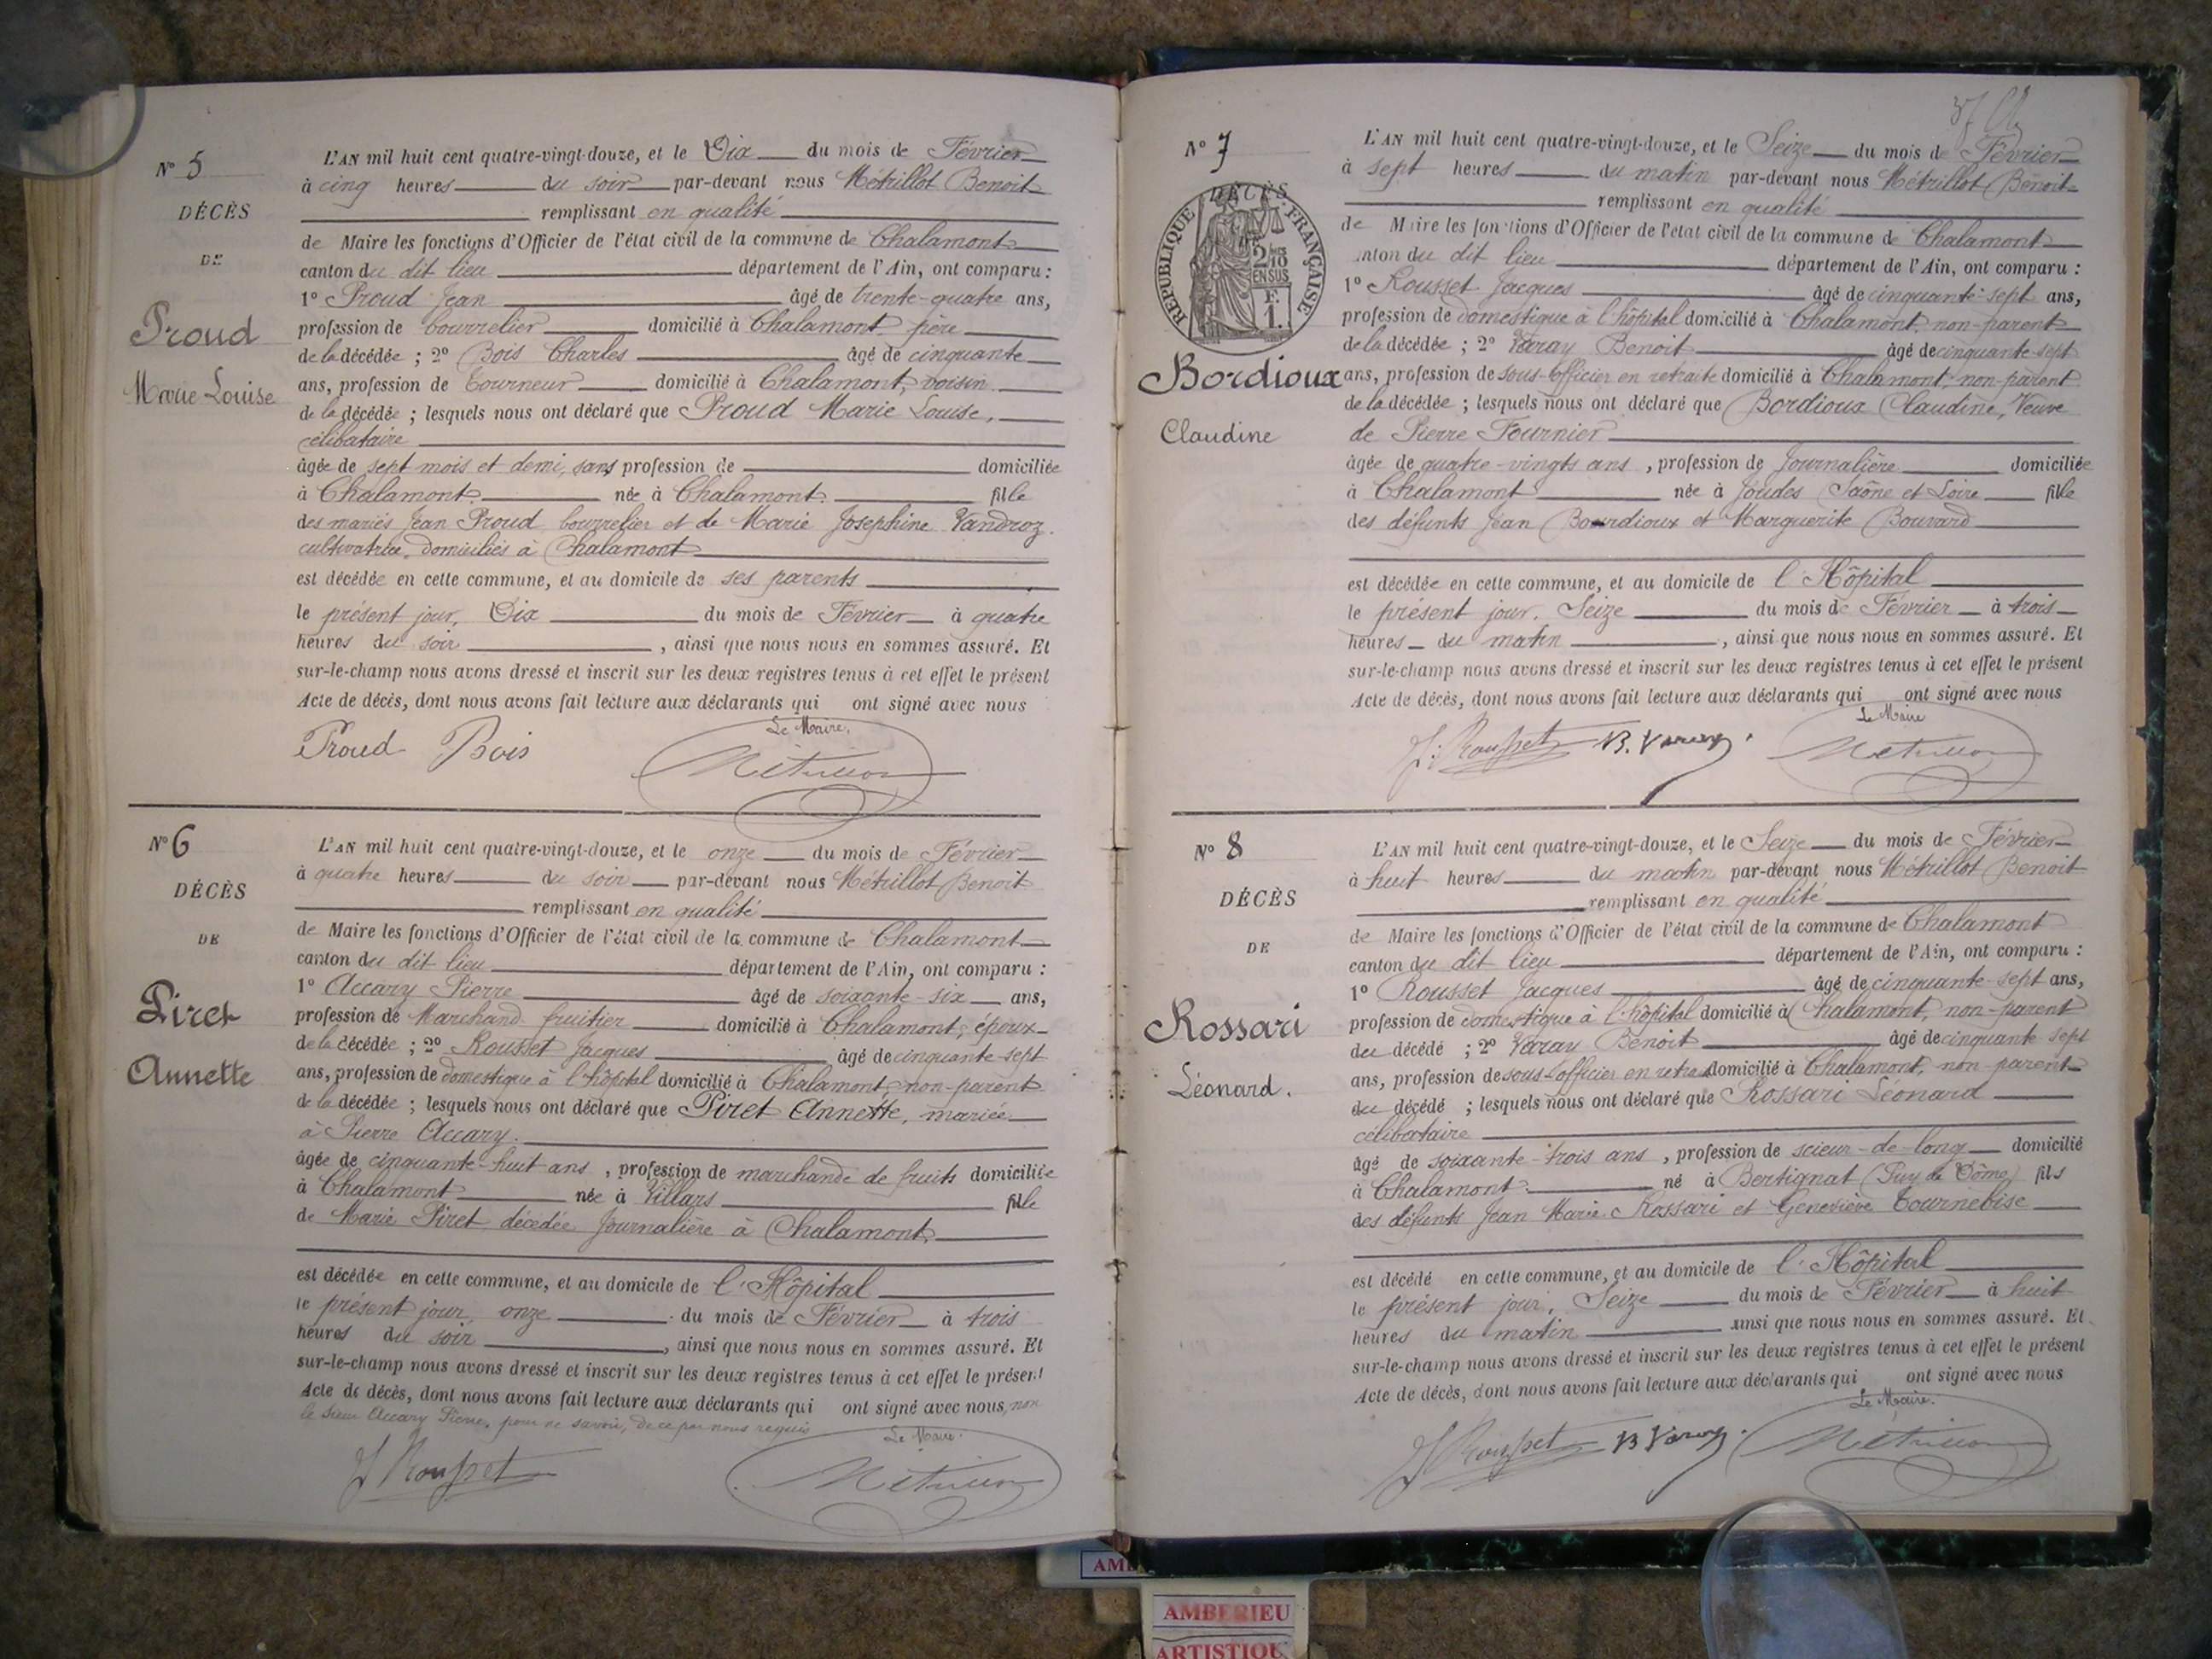 N° 5
DÉCÈS
DE
Proud
Marie Louise
L'AN mil huit cent quatre-vingt-douze, et le Dix du mois de Février
à cinq heures du soir par-devant nous Métrillot Benoit
remplissant en qualité
de Maire les fonctions d'Officier de l'état civil de la commune de Chalamont
canton du dit lieu département de l'Ain, ont comparu :
1° Proud Jean âgé de trente-quatre ans,
profession de bourrelier domicilié à Chalamont, père
de la décédée ; 2° Bois Charles âgé de cinquante
ans, profession de Tourneur domicilié à Chalamont, voisin
de la décédée ; lesquels nous ont déclaré que Proud Marie Louise,
célibataire
âgée de sept mois et demi, sans profession de domiciliée
à Chalamont née à Chalamont. fille
des mariés Jean Proud bourrelier et de Marie Josephine Vandroz
cultivatrice, domiciliés à Chalamont
est décédée en cette commune, et au domicile de ses parents
le présent jour, Dix du mois de Février à quatre
heures du soir , ainsi que nous nous en sommes assuré. Et
sur-le-champ nous avons dressé et inscrit sur les deux registres tenus à cet effet le présent
Acte de décès, dont nous avons fait lecture aux déclarants qui ont signé avec nous
Le Maire.
Proud Bois Métrillot
N° 6
DÉCÈS
DE
Piret
Annette
L'AN mil huit cent quatre-vingt-douze, et le onze du mois de Février
à quatre heures du soir par-devant nous Métrillot Benoit
remplissant en qualité
de Maire les fonctions d'Officier de l'état civil de la commune de Chalamont
canton du dit lieu département de l'Ain, ont comparu :
1° Accary Pierre âgé de soixante-six ans,
profession de Marchand fruitier domicilié à Chalamont, époux
de la décédée ; 2° Rousset Jacques âgé de cinquante-sept
ans, profession de domestique à l'hôpital domicilié à Chalamont, non-parent
de la décédée ; lesquels nous ont déclaré que Piret Annette, mariée
à Pierre Accary.
âgée de cinquante-huit ans , profession de marchande de fruits domiciliée
à Chalamont née à Villars fille
de Marie Piret décédée Journalière à Chalamont
est décédée en cette commune, et au domicile de l'Hôpital
le présent jour onze du mois de Février à trois
heures du soir , ainsi que nous nous en sommes assuré. Et
sur-le-champ nous avons dressé et inscrit sur les deux registres tenus à cet effet le présent
Acte de décès, dont nous avons fait lecture aux déclarants qui ont signé avec nous, non
le sieur Accary Pierre, pour ne savoir, de ce par nous requis
Le Maire.
J Rousset Métrillot
N° 7
DÉCÈS
RÉPUBLIQUE FRANÇAISE
2/10
EN SUS
F.
1.
Bordioux
Claudine
L'AN mil huit cent quatre-vingt-douze, et le Seize du mois de Février
à sept heures du matin par-devant nous Métrillot Benoit
remplissant en qualité
de Maire les fonctions d'Officier de l'état civil de la commune de Chalamont
canton du dit lieu département de l'Ain, ont comparu :
1° Rousset Jacques âgé de cinquante-sept ans,
profession de domestique à l'hôpital domicilié à Chalamont, non-parent
de la décédée ; 2° Varay Benoit âgé de cinquante-sept
ans, profession de sous-officier en retraite domicilié à Chalamont, non-parent
de la décédée ; lesquels nous ont déclaré que Bordioux Claudine, Veuve
de Pierre Fournier
âgée de quatre-vingts ans , profession de Journalière domiciliée
à Chalamont née à Joudes Saône et Loire fille
des défunts Jean Bourdioux et Marguerite Bouvard
est décédée en cette commune, et au domicile de l'Hôpital
le présent jour, Seize du mois de Février à trois
heures du matin , ainsi que nous nous en sommes assuré. Et
sur-le-champ nous avons dressé et inscrit sur les deux registres tenus à cet effet le présent
Acte de décès, dont nous avons fait lecture aux déclarants qui ont signé avec nous
Le Maire
J. Rousset B. Varay Métrillot
N° 8
DÉCÈS
DE
Rossari
Léonard.
L'AN mil huit cent quatre-vingt-douze, et le Seize du mois de Février
à huit heures du matin par-devant nous Métrillot Benoit
remplissant en qualité
de Maire les fonctions d'Officier de l'état civil de la commune de Chalamont
canton du dit lieu département de l'Ain, ont comparu :
1° Rousset Jacques âgé de cinquante-sept ans,
profession de domestique à l'hôpital domicilié à Chalamont, non-parent
du décédé ; 2° Varay Benoit âgé de cinquante sept
ans, profession de sous-officier en retraite domicilié à Chalamont, non-parent
du décédé ; lesquels nous ont déclaré que Rossari Léonard
célibataire
âgé de soixante-trois ans , profession de scieur-de-long domicilié
à Chalamont. né à Bertignat (Puy de Dôme) fils
des défunts Jean Marie Rossari et Geneviève Tournebise
est décédé en cette commune, et au domicile de l'Hôpital
le présent jour, Seize du mois de Février à huit
heures du matin ainsi que nous nous en sommes assuré. Et
sur-le-champ nous avons dressé et inscrit sur les deux registres tenus à cet effet le présent
Acte de décès, dont nous avons fait lecture aux déclarants qui ont signé avec nous
Le Maire.
J Rousset B Varay Métrillot
AMBERIEU
ARTISTIQU